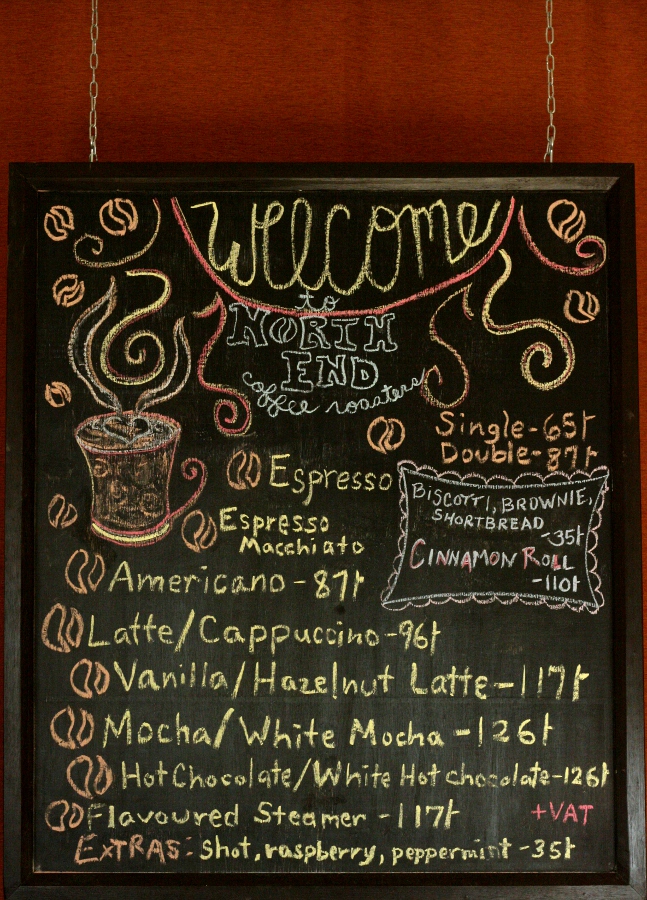 Welcome
to
NORTH
END
coffee roasters
Single-65৳
Double-87৳
Espresso
Espresso
Macchiato
BISCOTTI, BROWNIE,
SHORTBREAD
-35৳
CINNAMON ROLL
-110৳
Americano - 87৳
Latte/Cappuccino-96৳
Vanilla/Hazelnut Latte-117৳
Mocha/White Mocha -126৳
Hot Chocolate/White Hot chocolate-126৳
Flavoured Steamer -117৳
+VAT
EXTRAS: Shot, raspberry, peppermint -35৳